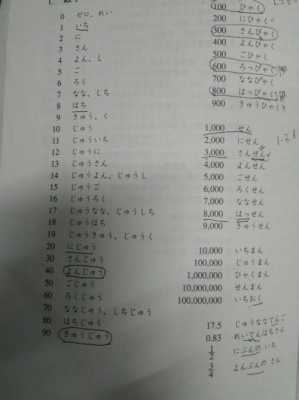 0 ゼロ、れい
1 いち
2 に
3 さん
4 よん、し
5 ご
6 ろく
7 なな、しち
8 はち
9 きゅう、く
10 じゅう
11 じゅういち
12 じゅうに
13 じゅうさん
14 じゅうよん、じゅうし
15 じゅうご
16 じゅうろく
17 じゅうなな、じゅうしち
18 じゅうはち
19 じゅうきゅう、じゅうく
20 にじゅう
30 さんじゅう
40 よんじゅう
50 ごじゅう
60 ろくじゅう
70 ななじゅう、しちじゅう
80 はちじゅう
90 きゅうじゅう
100 ひゃく
200 にひゃく
300 さんびゃく
400 よんひゃく
500 ごひゃく
600 ろっぴゃく
700 ななひゃく
800 はっぴゃく
900 きゅうひゃく
1,000 せん
2,000 にせん
3,000 さんぜん
4,000 よんせん
5,000 ごせん
6,000 ろくせん
7,000 ななせん
8,000 はっせん
9,000 きゅうせん
10,000 いちまん
100,000 じゅうまん
1,000,000 ひゃくまん
10,000,000 せんまん
100,000,000 いちおく
17.5 じゅうななてんご
0.83 れいてんはちさん
1/2 にぶんの いち
3/4 よんぶんの さん